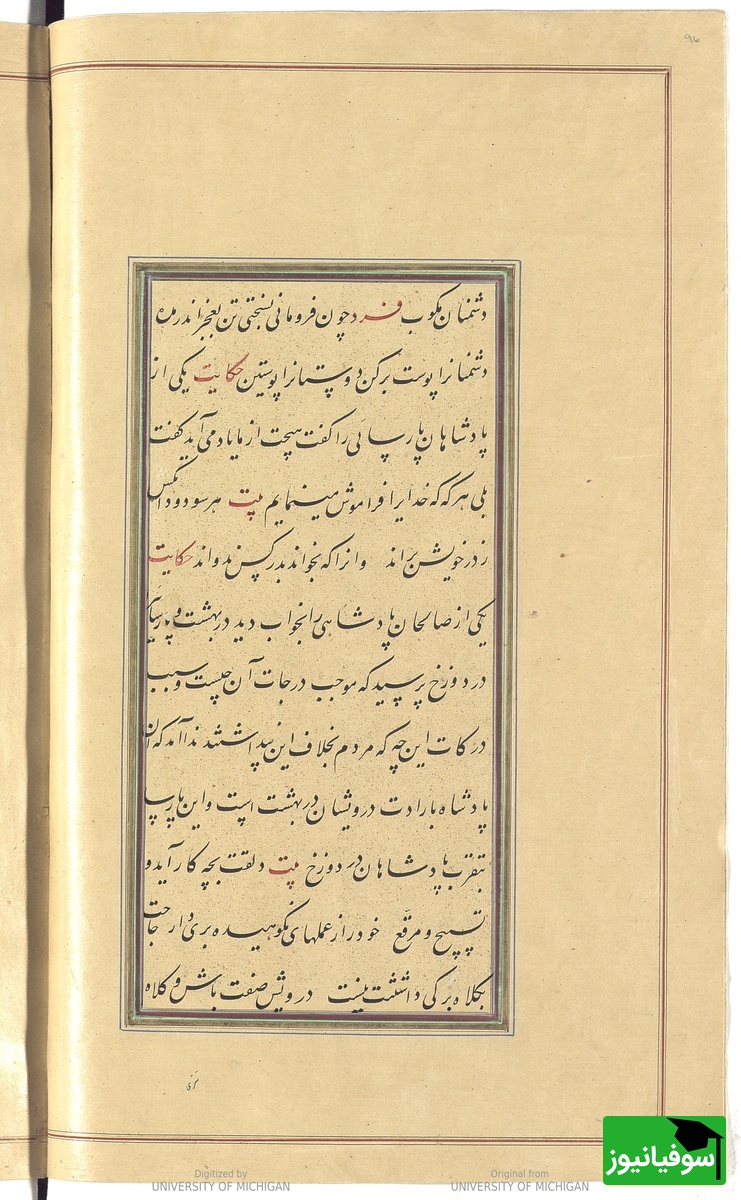 ۹۶
دشمنان مکوب فرد چون فرومانی بسختی تن بعجز اندر مده
دشمنانرا پوست برکن دوستانرا پوستین حکایت یکی از
پادشاهان پارسایی را گفت هیچت از ما یاد می آید گفت
بلی هرگه که خدایرا فراموش مینمایم بیت هر سو دود آنکس
ز در خویش براند وانرا که بخواند بدر کس ندواند حکایت
یکی از صالحان پادشاهی را بخواب دید در بهشت و پارسایی
در دوزخ پرسید که موجب درجات آن چیست و سبب
درکات این چه که مردم بخلاف این پنداشتند ندا آمد که آن
پادشاه بارادت درویشان در بهشت است و این پارسا
بتقرب پادشاهان در دوزخ بیت دلقت بچه کار آید و
تسبیح و مرقع خود را ز عملهای نکوهیده بری دار حاجت
بکلاه برکی داشتنت نیست درویش صفت باش و کلاه
سوفیانیوز
Digitized by
UNIVERSITY OF MICHIGAN
Original from
UNIVERSITY OF MICHIGAN